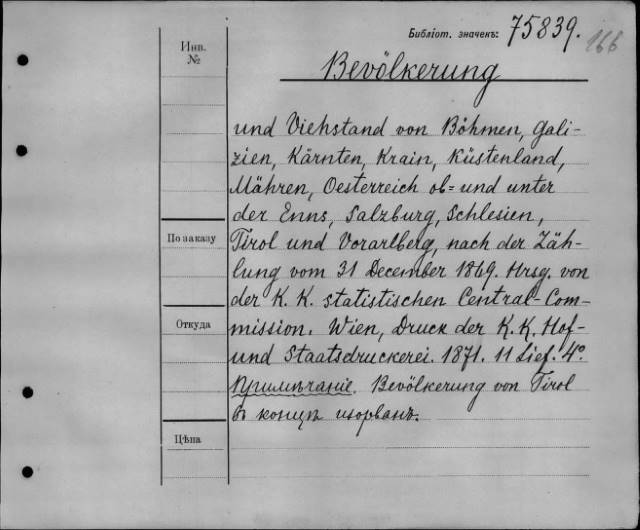 Библіот. значекъ: 75839.
166
Инв.
№
Bevölkerung
und Viehstand von Böhmen, Gali-
zien, Kärnten, Krain, Küstenland,
Mähren, Oesterreich ob= und unter
der Enns, Salzburg, Schlesien,
По заказу
Tirol und Vorarlberg, nach der Zäh-
lung vom 31 December 1869. Hrsg. von
der K. K. statistischen Central-Com-
Откуда
mission. Wien, Druck der K. K. Hof-
und Staatsdruckerei. 1871. 11 Lief. 4°.
Примѣчаніе. Bevölkerung von Tirol
въ концѣ изорванъ.
Цѣна